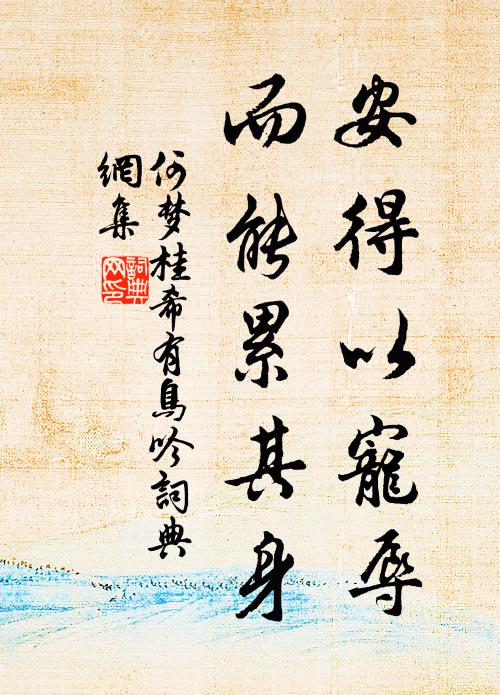 安得以寵辱
而能累其身
何梦桂希有鳥吟詞典
網集
詞典
网印